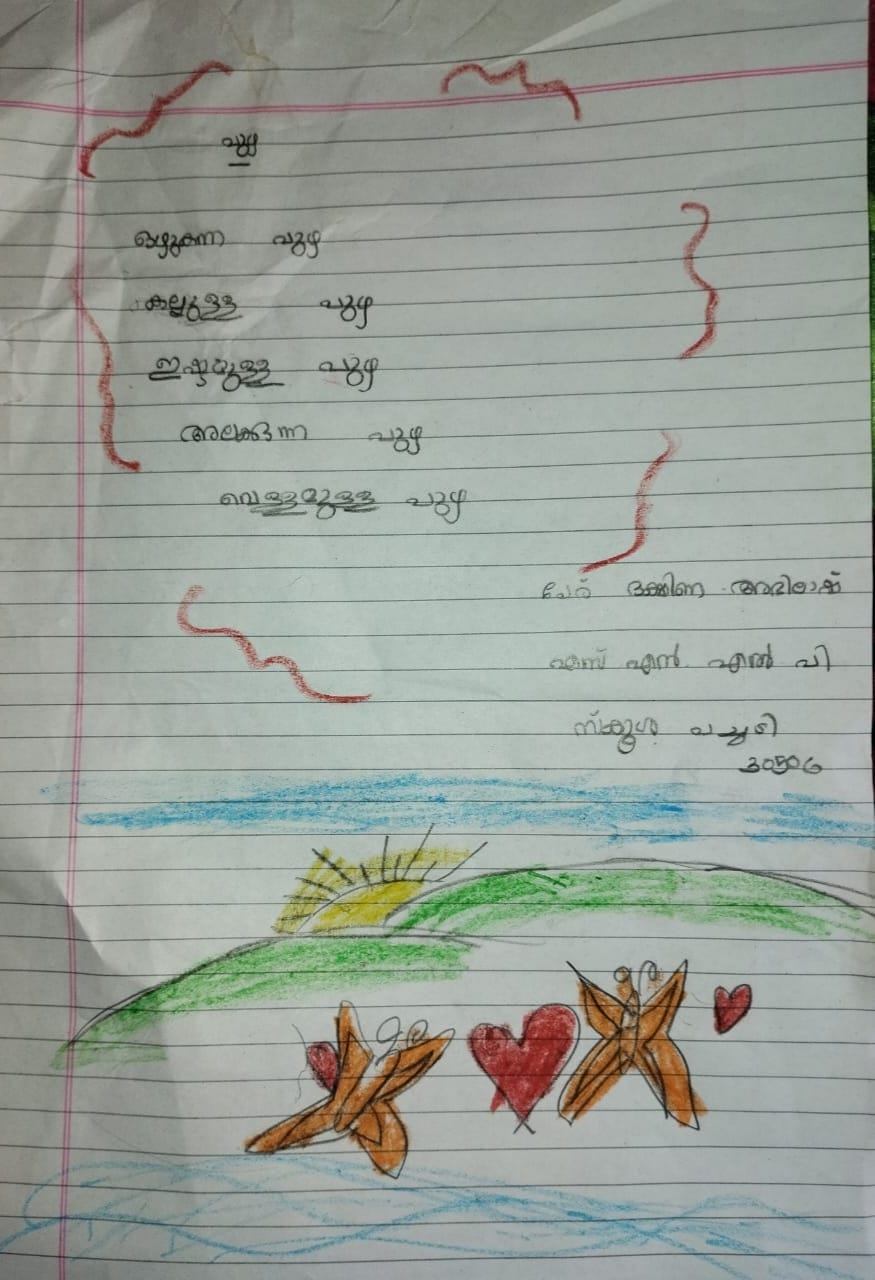 പുഴ
ഒഴുകുന്ന പുഴ
കല്ലുള്ള പുഴ
ഇഷ്ടമുള്ള പുഴ
അലക്കുന്ന പുഴ
വെള്ളമുള്ള പുഴ
പേര് ദക്ഷിണ അഭിലാഷ്
എസ് എൻ എൽ പി
സ്കൂൾ പച്ചടി
30506